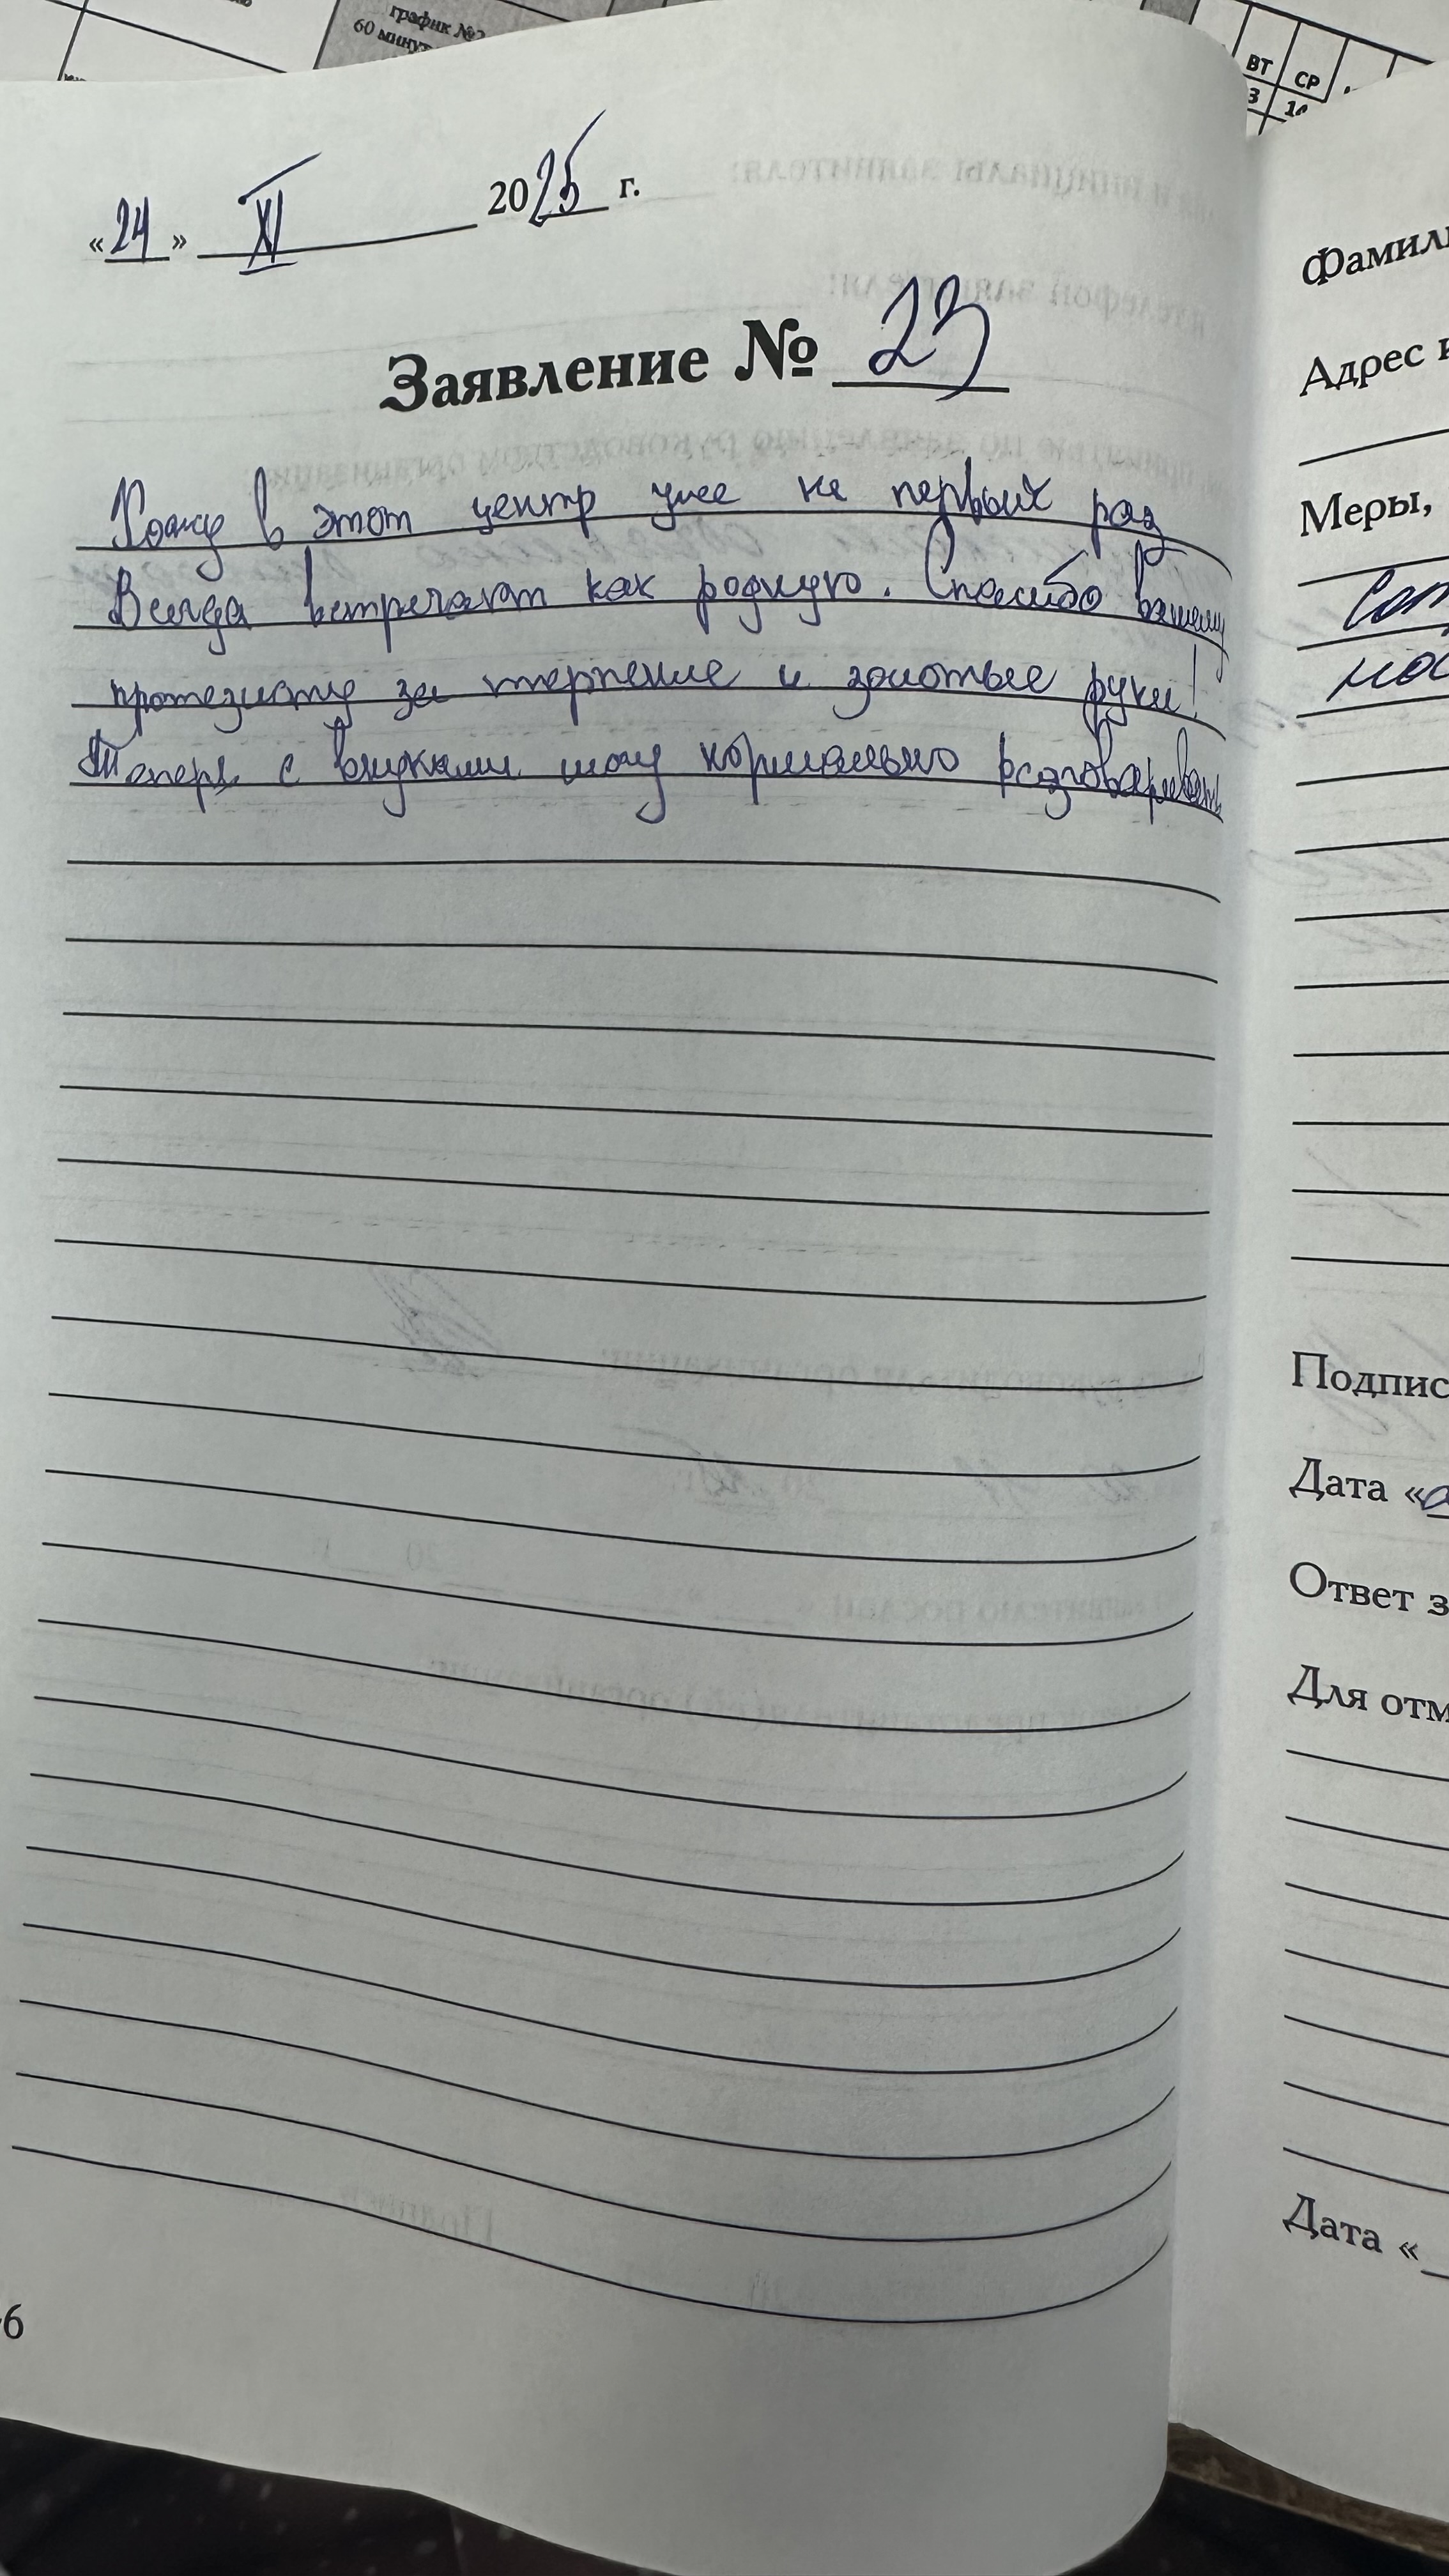 график №2
60 минут
ВТ
СР
3
«24» XI 2025 г.
Заявление № 23
Хожу в этот центр уже не первых раз
Всегда встречают как родную. Спасибо вашему
протезисту за терпение и золотые руки!
Теперь с внуками могу нормально разговаривать
6
Фамили
Адрес и
Меры,
Подпис
Дата «
Ответ з
Для отм
Дата «